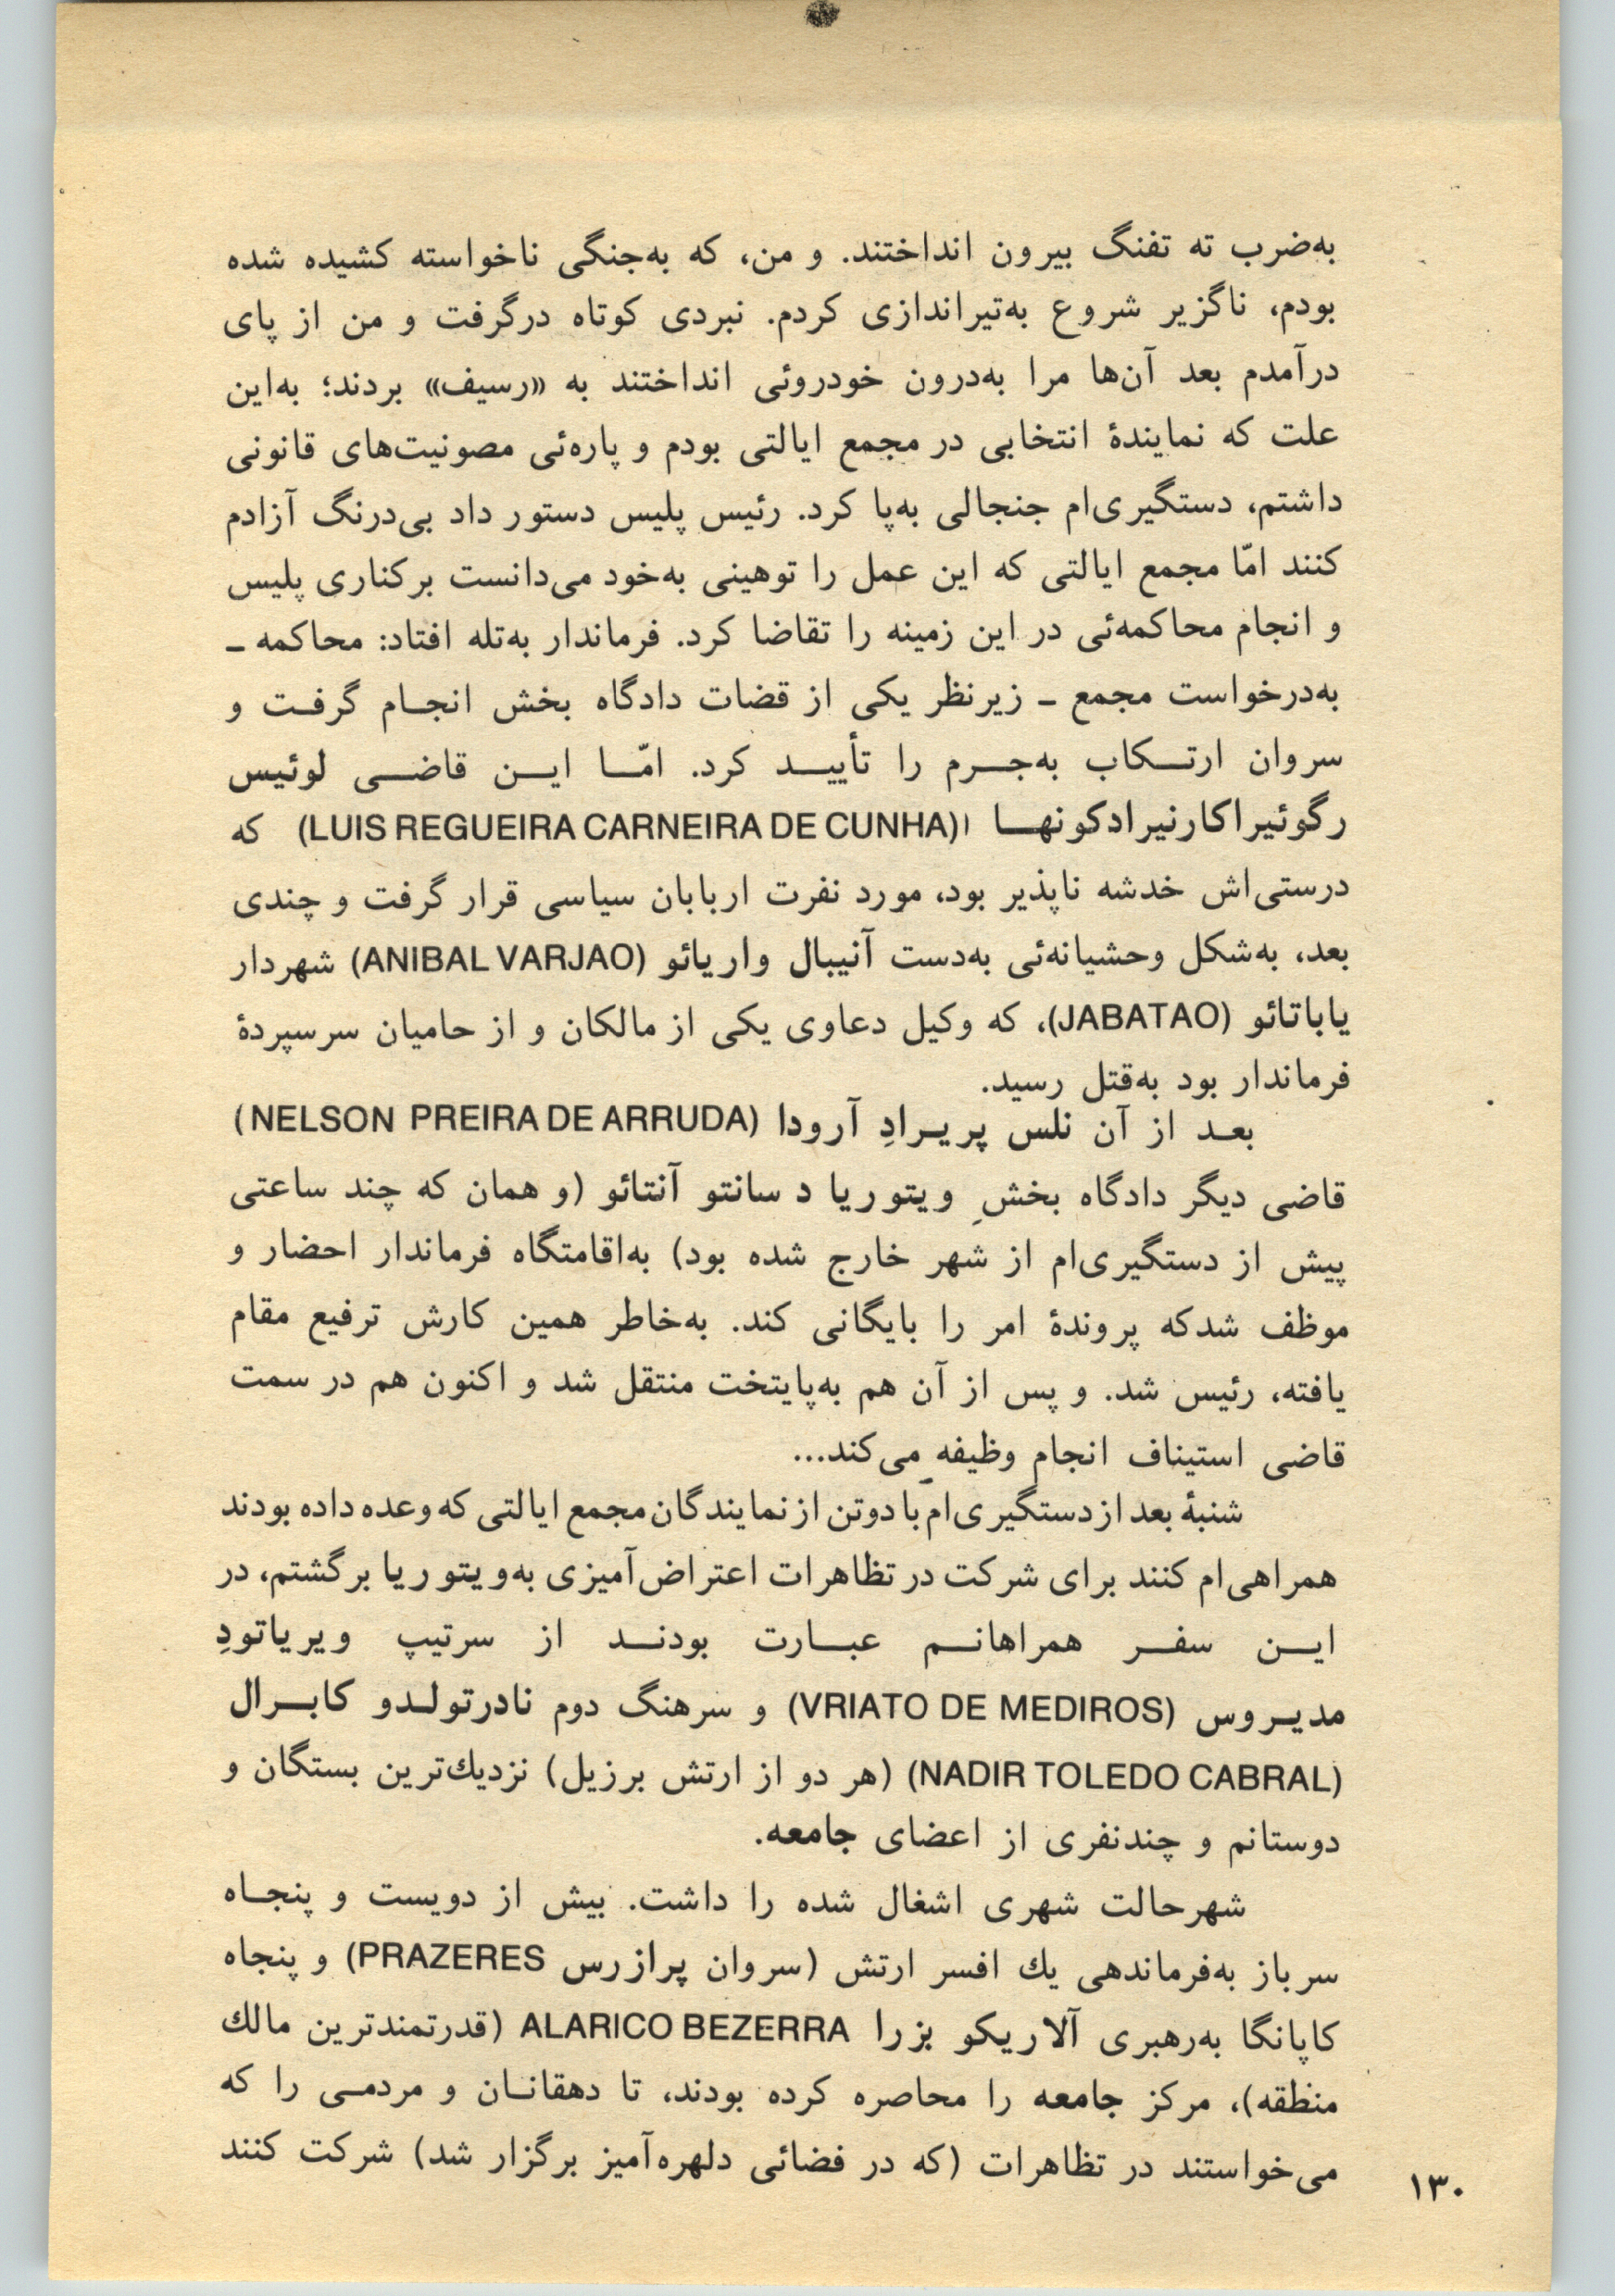 به‌ضرب ته تفنگ بیرون انداختند. و من، که به‌جنگی ناخواسته کشیده شده
بودم، ناگزیر شروع به‌تیراندازی کردم. نبردی کوتاه درگرفت و من از پای
درآمدم بعد آن‌ها مرا به‌درون خودروئی انداختند به «رسیف» بردند؛ به‌این
علت که نمایندهٔ انتخابی در مجمع ایالتی بودم و پاره‌ئی مصونیت‌های قانونی
داشتم، دستگیری‌ام جنجالی به‌پا کرد. رئیس پلیس دستور داد بی‌درنگ آزادم
کنند امّا مجمع ایالتی که این عمل را توهینی به‌خود می‌دانست برکناری پلیس
و انجام محاکمه‌ئی در این زمینه را تقاضا کرد. فرماندار به‌تله افتاد: محاکمه ـ
به‌درخواست مجمع ـ زیرنظر یکی از قضات دادگاه بخش انجـام گرفـت و
سروان ارتـکاب به‌جـرم را تأییـد کرد. امّـا ایـن قاضـی لوئیس
رگوئیراکارنیرادکونهـا (LUIS REGUEIRA CARNEIRA DE CUNHA) که
درستی‌اش خدشه ناپذیر بود، مورد نفرت اربابان سیاسی قرار گرفت و چندی
بعد، به‌شکل وحشیانه‌ئی به‌دست آنیبال واریائو (ANIBAL VARJAO) شهردار
یاباتائو (JABATAO)، که وکیل دعاوی یکی از مالکان و از حامیان سرسپردهٔ
فرماندار بود به‌قتل رسید.
بعـد از آن نلس پریـرادِ آرودا (NELSON PREIRA DE ARRUDA)
قاضی دیگر دادگاه بخشِ ویتوریا د سانتو آنتائو (و همان که چند ساعتی
پیش از دستگیری‌ام از شهر خارج شده بود) به‌اقامتگاه فرماندار احضار و
موظف شدکه پروندهٔ امر را بایگانی کند. به‌خاطر همین کارش ترفیع مقام
یافته، رئیس شد. و پس از آن هم به‌پایتخت منتقل شد و اکنون هم در سمت
قاضی استیناف انجام وظیفه می‌کند...
شنبهٔ بعد از دستگیری‌ام با دوتن از نمایندگان مجمع ایالتی که وعده داده بودند
همراهی‌ام کنند برای شرکت در تظاهرات اعتراض‌آمیزی به‌ویتوریا برگشتم، در
ایـن سفـر همراهانـم عبـارت بودنـد از سرتیپ ویریاتودِ
مدیـروس (VRIATO DE MEDIROS) و سرهنگ دوم نادرتولـدو کابـرال
(NADIR TOLEDO CABRAL) (هر دو از ارتش برزیل) نزدیك‌ترین بستگان و
دوستانم و چندنفری از اعضای جامعه.
شهرحالت شهری اشغال شده را داشت. بیش از دویست و پنجـاه
سرباز به‌فرماندهی یك افسر ارتش (سروان پرازرس PRAZERES) و پنجاه
کاپانگا به‌رهبری آلاریکو بزرا ALARICO BEZERRA (قدرتمندترین مالك
منطقه)، مرکز جامعه را محاصره کرده بودند، تا دهقانـان و مردمـی را که
می‌خواستند در تظاهرات (که در فضائی دلهره‌آمیز برگزار شد) شرکت کنند
۱۳۰